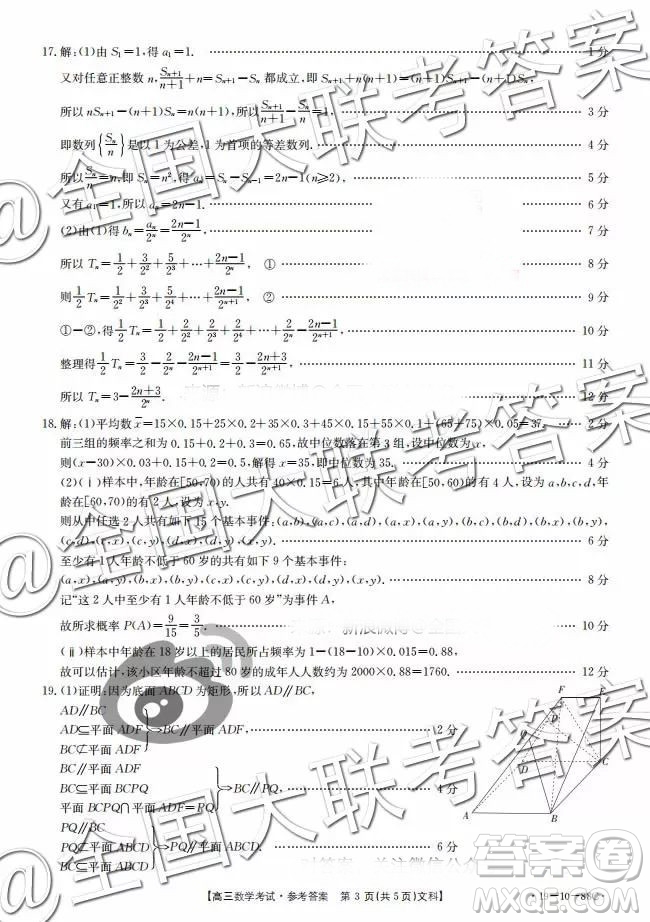 17.解:(1)由 S₁=1,得 a₁=1. 1 分
又对任意正整数 n, Sₙ₊₁/(n+1)+n=Sₙ₊₁-Sₙ 都成立,即 Sₙ₊₁+n(n+1)=(n+1)Sₙ₊₁-(n+1)Sₙ,
所以 nSₙ₊₁-(n+1)Sₙ=n(n+1),所以 Sₙ₊₁/(n+1)-Sₙ/n=1, 3 分
即数列{Sₙ/n}是以 1 为公差,1 为首项的等差数列. 4 分
所以 Sₙ/n=n²,得 aₙ=Sₙ-Sₙ₋₁=2n-1(n≥2), 5 分
又有 a₁=1,所以 aₙ=2n-1. 6 分
(2)由(1)得 bₙ=aₙ/2ⁿ=(2n-1)/2ⁿ, 7 分
所以 Tₙ=1/2+3/2²+5/2³+…+(2n-1)/2ⁿ, ① 8 分
则 1/2 Tₙ=1/2²+3/2³+5/2⁴+…+(2n-1)/2ⁿ⁺¹, ② 9 分
①-②,得 1/2 Tₙ=1/2+2/2²+2/2³+2/2⁴+…+2/2ⁿ-(2n-1)/2ⁿ⁺¹, 10 分
整理得 1/2 Tₙ=3/2-2/2ⁿ-(2n-1)/2ⁿ⁺¹=3/2-(2n+3)/2ⁿ⁺¹, 11 分
所以 Tₙ=3-(2n+3)/2ⁿ. 12 分
18.解:(1)平均数 x̄=15×0.15+25×0.2+35×0.3+45×0.15+55×0.1+(65+75)×0.05=37. 2 分
前三组的频率之和为 0.15+0.2+0.3=0.65,故中位数落在第 3 组,设中位数为 x,
则(x-30)×0.03+0.15+0.2=0.5,解得 x=35,即中位数为 35. 4 分
(2)(ⅰ)样本中,年龄在[50,70)的人共有 40×0.15=6 人,其中年龄在[50,60)的有 4 人,设为 a,b,c,d,年
龄在[60,70)的有 2 人,设为 x,y.
则从中任选 2 人共有如下 15 个基本事件:(a,b),(a,c),(a,d),(a,x),(a,y),(b,c),(b,d),(b,x),(b,y),
(c,d),(c,x),(c,y),(d,x),(d,y),(x,y). 6 分
至少有 1 人年龄不低于 60 岁的共有如下 9 个基本事件:
(a,x),(a,y),(b,x),(b,y),(c,x),(c,y),(d,x),(d,y),(x,y). 8 分
记“这 2 人中至少有 1 人年龄不低于 60 岁”为事件 A,
故所求概率 P(A)=9/15=3/5. 10 分
(ⅱ)样本中年龄在 18 岁以上的居民所占频率为 1-(18-10)×0.015=0.88,
故可以估计,该小区年龄不超过 80 岁的成年人人数约为 2000×0.88=1760. 12 分
19.(1)证明:因为底面 ABCD 为矩形,所以 AD∥BC,
AD∥BC
AD⊆平面 ADF ⇒BC∥平面 ADF 2 分
BC⊄平面 ADF
BC∥平面 ADF
BC⊆平面 BCPQ ⇒BC∥PQ 4 分
平面 BCPQ∩平面 ADF=PQ
PQ∥BC
PQ⊄平面 ABCD ⇒PQ∥平面 ABCD. 6 分
BC⊆平面 ABCD
F E P Q D C A B
【高三数学考试·参考答案 第 3 页(共 5 页)文科】
·19-10-88C·
@全国大联考答案
@全国大联考答案
@全国大联考答案
答案卷